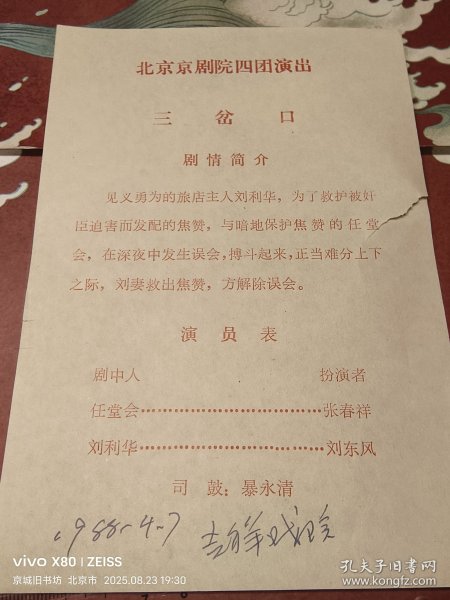 北京京剧院四团演出
三岔口
剧情简介
见义勇为的旅店主人刘利华，为了救护被奸
臣迫害而发配的焦赞，与暗地保护焦赞的任堂
会，在深夜中发生误会，搏斗起来，正当难分上下
之际，刘妻救出焦赞，方解除误会。
演员表
剧中人 扮演者
任堂会……………………………张春祥
刘利华……………………………刘东风
司鼓：暴永清
1988-4-7 吉祥戏院
vivo X80 | ZEISS
京城旧书坊 北京市 2025.08.23 19:30
孔夫子旧书网
www.kongfz.com